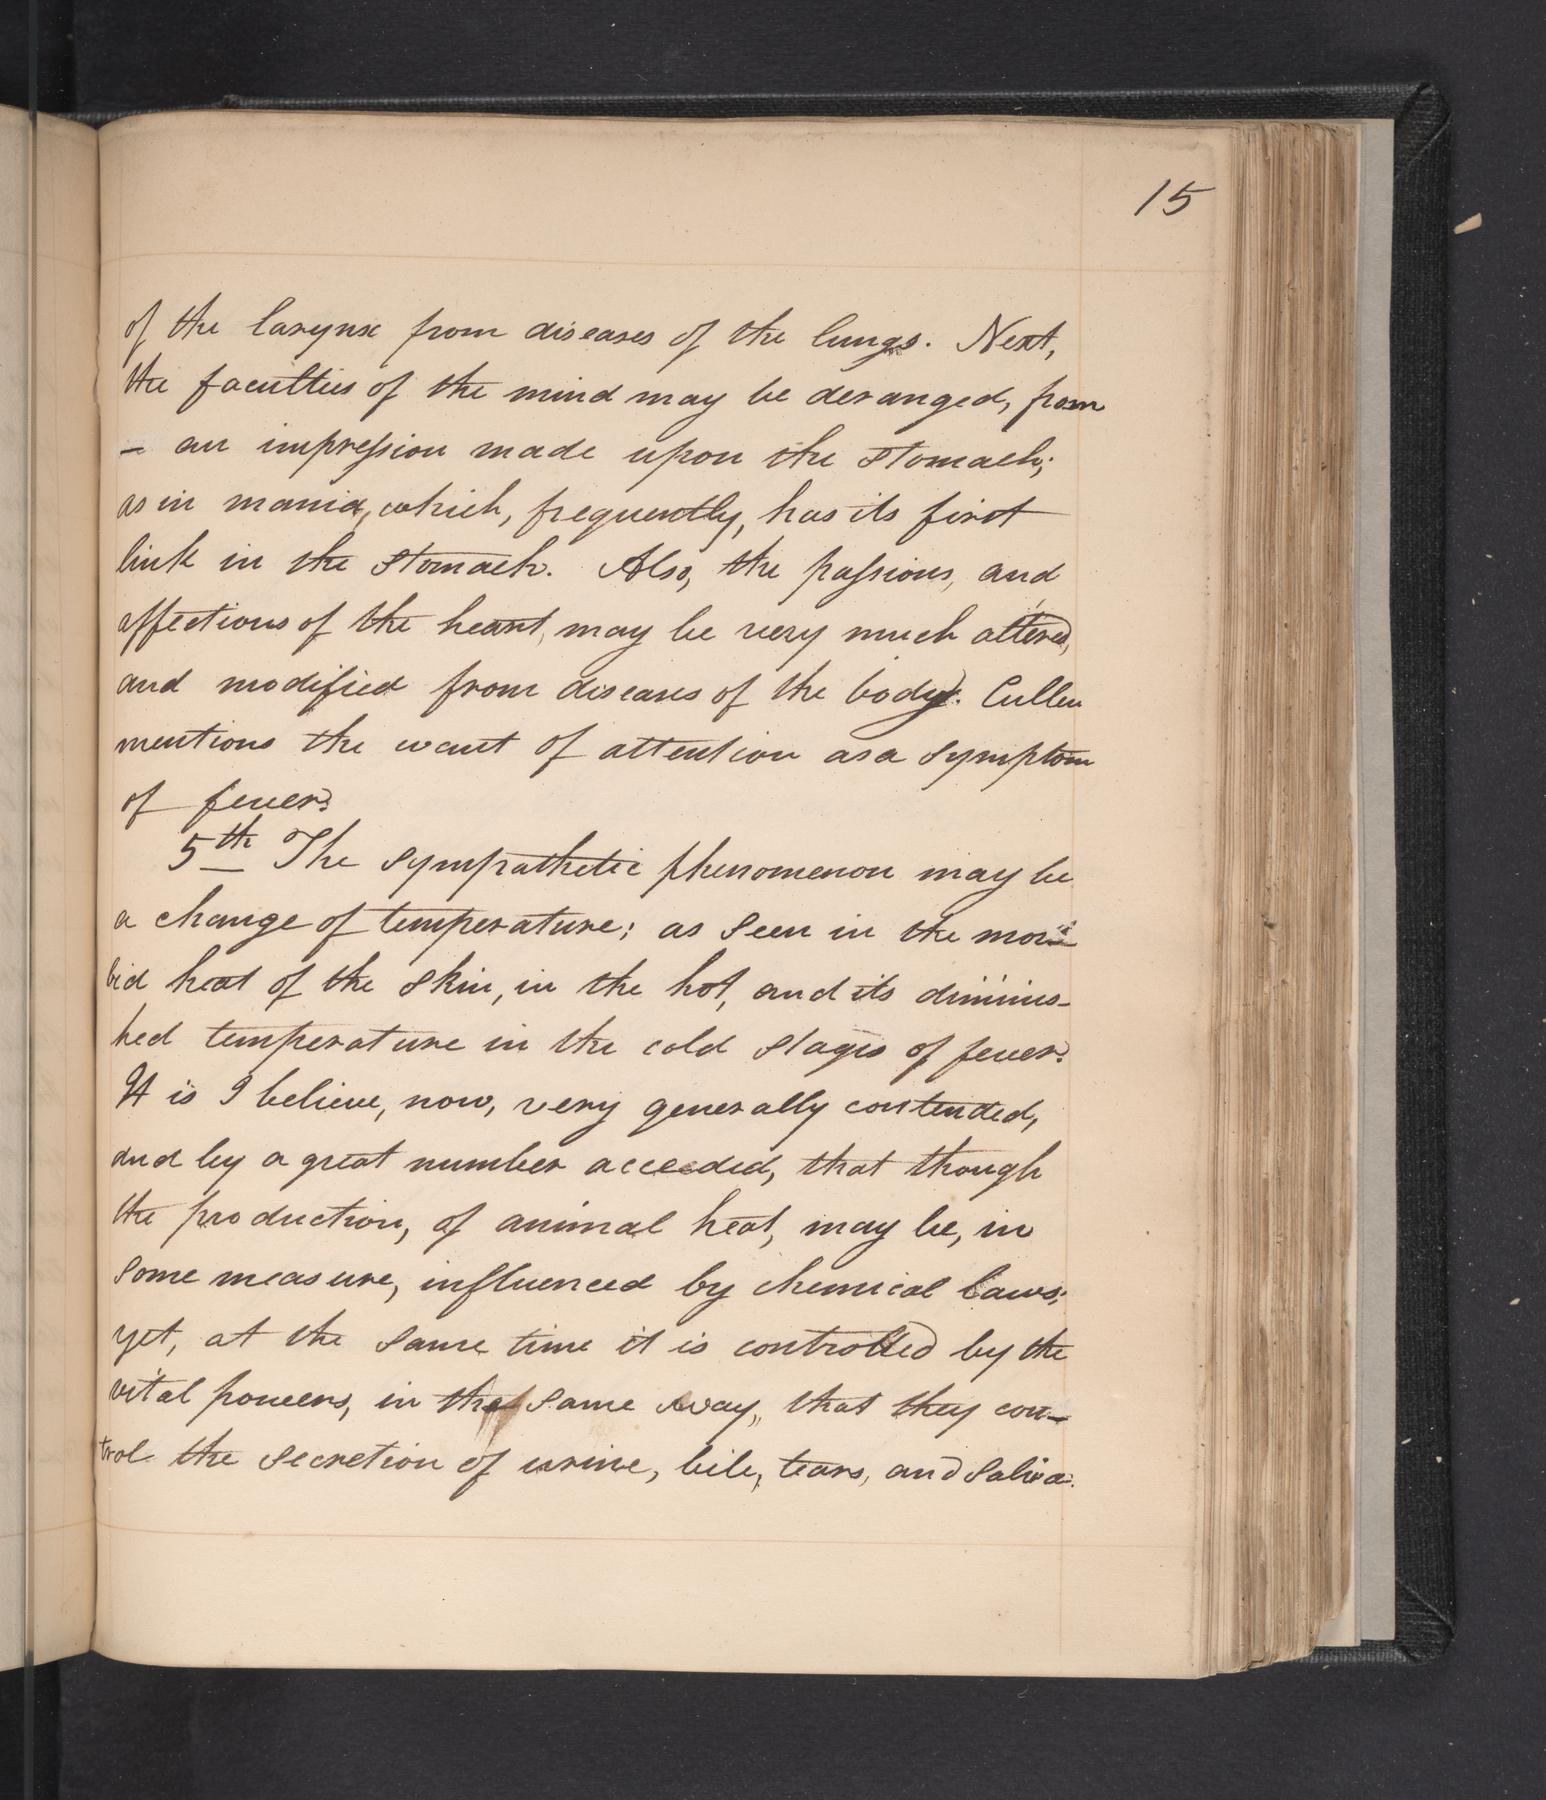 15
of the larynx from diseases of the lungs. Next,
the faculties of the mind may be deranged, from
– an impression made upon the stomach;
as in mania, which, frequently, has its first
link in the stomach. Also, the passions, and
affections of the heart, may be very much altered,
and modified from diseases of the body. Cullen
mentions the want of attention as a symptom
of fever.
5th The sympathetic phenomenon may be
a change of temperature; as seen in the mor-
bid heat of the skin, in the hot, and its diminis-
hed temperature in the cold stages of fever.
It is I believe, now, very generally contended,
and by a great number acceeded, that though
the production, of animal heat, may be, in
some measure, influenced by chemical laws;
yet, at the same time it is controlled by the
vital powers, in the same way, that they con-
trol the secretion of urine, bile, tears, and saliva.